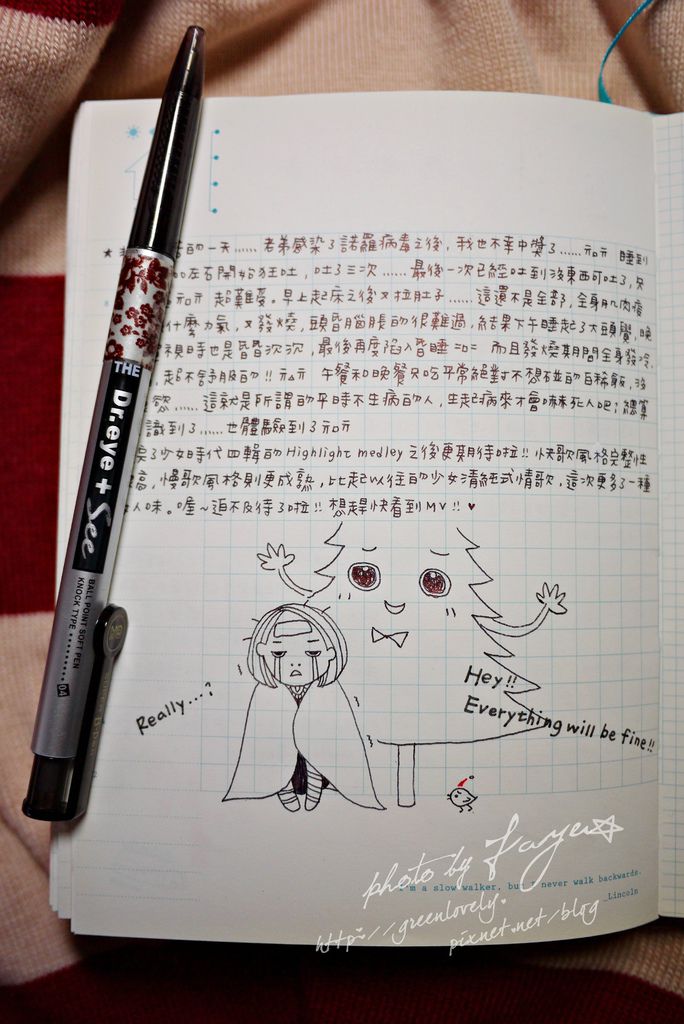 百的一天……老弟感染了諾羅病毒之後，我也不幸中獎了……π_π 睡到
左右開始狂吐，吐了三次……最後一次已經吐到沒東西可吐了，只
π_π 超難受。早上起床之後又拉肚子……這還不是全部，全身肌肉痠
什麼力氣，又發燒，頭昏腦脹的很難過，結果下午睡起了大頭覺，晚
視時也是昏昏沉沉，最後再度陷入昏睡 =口= 而且發燒期間全身發冷，
超不舒服的!! π_π 午餐和晚餐只吃平常絕對不想碰的白稀飯，沒
慾……這就是所謂的平時不生病的人，生起病來才會嚇死人吧；總算
識到了……也體驗到了 π_π
少女時代四輯的Highlight medley之後更期待啦!! 快歌風格完整性
高，慢歌風格則更成熟，比起以往的少女清純式情歌，這次更多了一種
人味。喔~迫不及待了啦!! 想趕快看到MV!! ♥
Hey!!
Everything will be fine!!
Really...?
THE Dr.eye + See
BALL POINT SOFT PEN
KNOCK TYPE 0.4
photo by Faye☆
I'm a slow walker, but I never walk backwards.
_Lincoln
http://greenlovely.
pixnet.net/blog